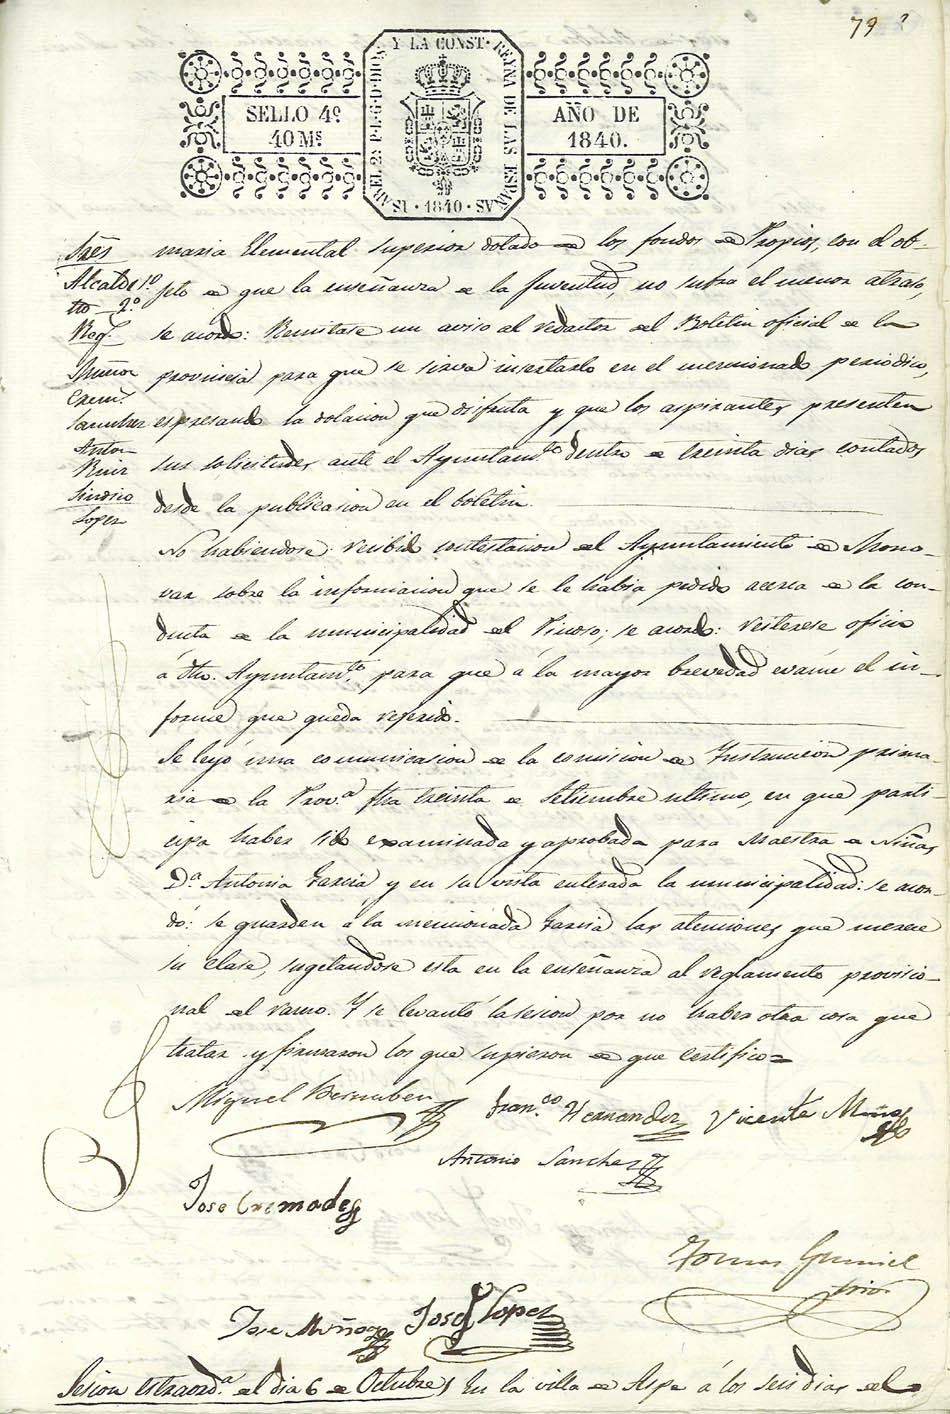 79
Y LA CONST. REYNA DE LAS ESPAÑAS
ISABEL 2ª P.L.G.D.DIOS
SELLO 4º
40 Mˢ
AÑO DE
1840.
1840
Sres
Alcalde 1º
Ito 2º
Regˢ
Muñoz
Crem.ˢ
Sanchez
Anton
Ruiz
Sindico
Lopez
maria Elemental superior dotado de los fondos de Propios, con el ob-
jeto de que la enseñanza de la Juventud, no sufra el menor atraso,
se acordo: Remitase un aviso al redactor del Boletin oficial de la
provincia para que se sirva insertarlo en el mencionado periodico,
espresando la dotacion que disfruta y que los aspirantes presenten
sus solicitudes ante el Ayuntamto dentro de treinta dias contados
desde la publicacion en el boletin.
No habiendose recibido contestacion del Ayuntamiento de Mono-
var sobre la informacion que se le habia pedido acerca de la con-
ducta de la municipalidad del Pinoso; se acordo: reiterese oficio
á dho. Ayuntamto, para que á la mayor brevedad evacue el in-
forme que queda referido.
Se leyó una comunicacion de la comision de Instruccion prima-
ria de la Prov.a fha treinta de Setiembre ultimo, en que parti-
cipa haber sido examinada y aprobada para Maestra de Niñas
D.a Antonia Garcia y en su vista enterada la municipalidad: se acor-
dó: se guarden á la mencionada Garcia las atenciones que merece
su clase, sugetandose esta en la enseñanza al reglamento provisio-
nal del ramo. Y se levantó la sesion por no haber otra cosa que
tratar y firmaron los que supieron de que certifico=
Miguel Bernabeu
Fran.co Hernandez Vicente Muñoz
Antonio Sanchez
Jose Cremades
Tomas Gumiel
Srio.
Jose Muñoz Josef Lopez
Sesion estraord.a del dia 6 de Octubre, En la villa de Aspe á los seis dias del